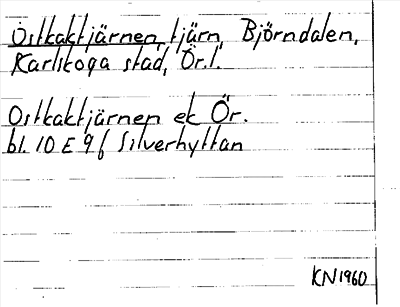 Ostkaktjärnen, tjärn, Björndalen,
Karlskoga stad, Ör.l.
Ostkaktjärnen ek Ör.
bl. 10 E 9 f Silverhyttan
KN1960